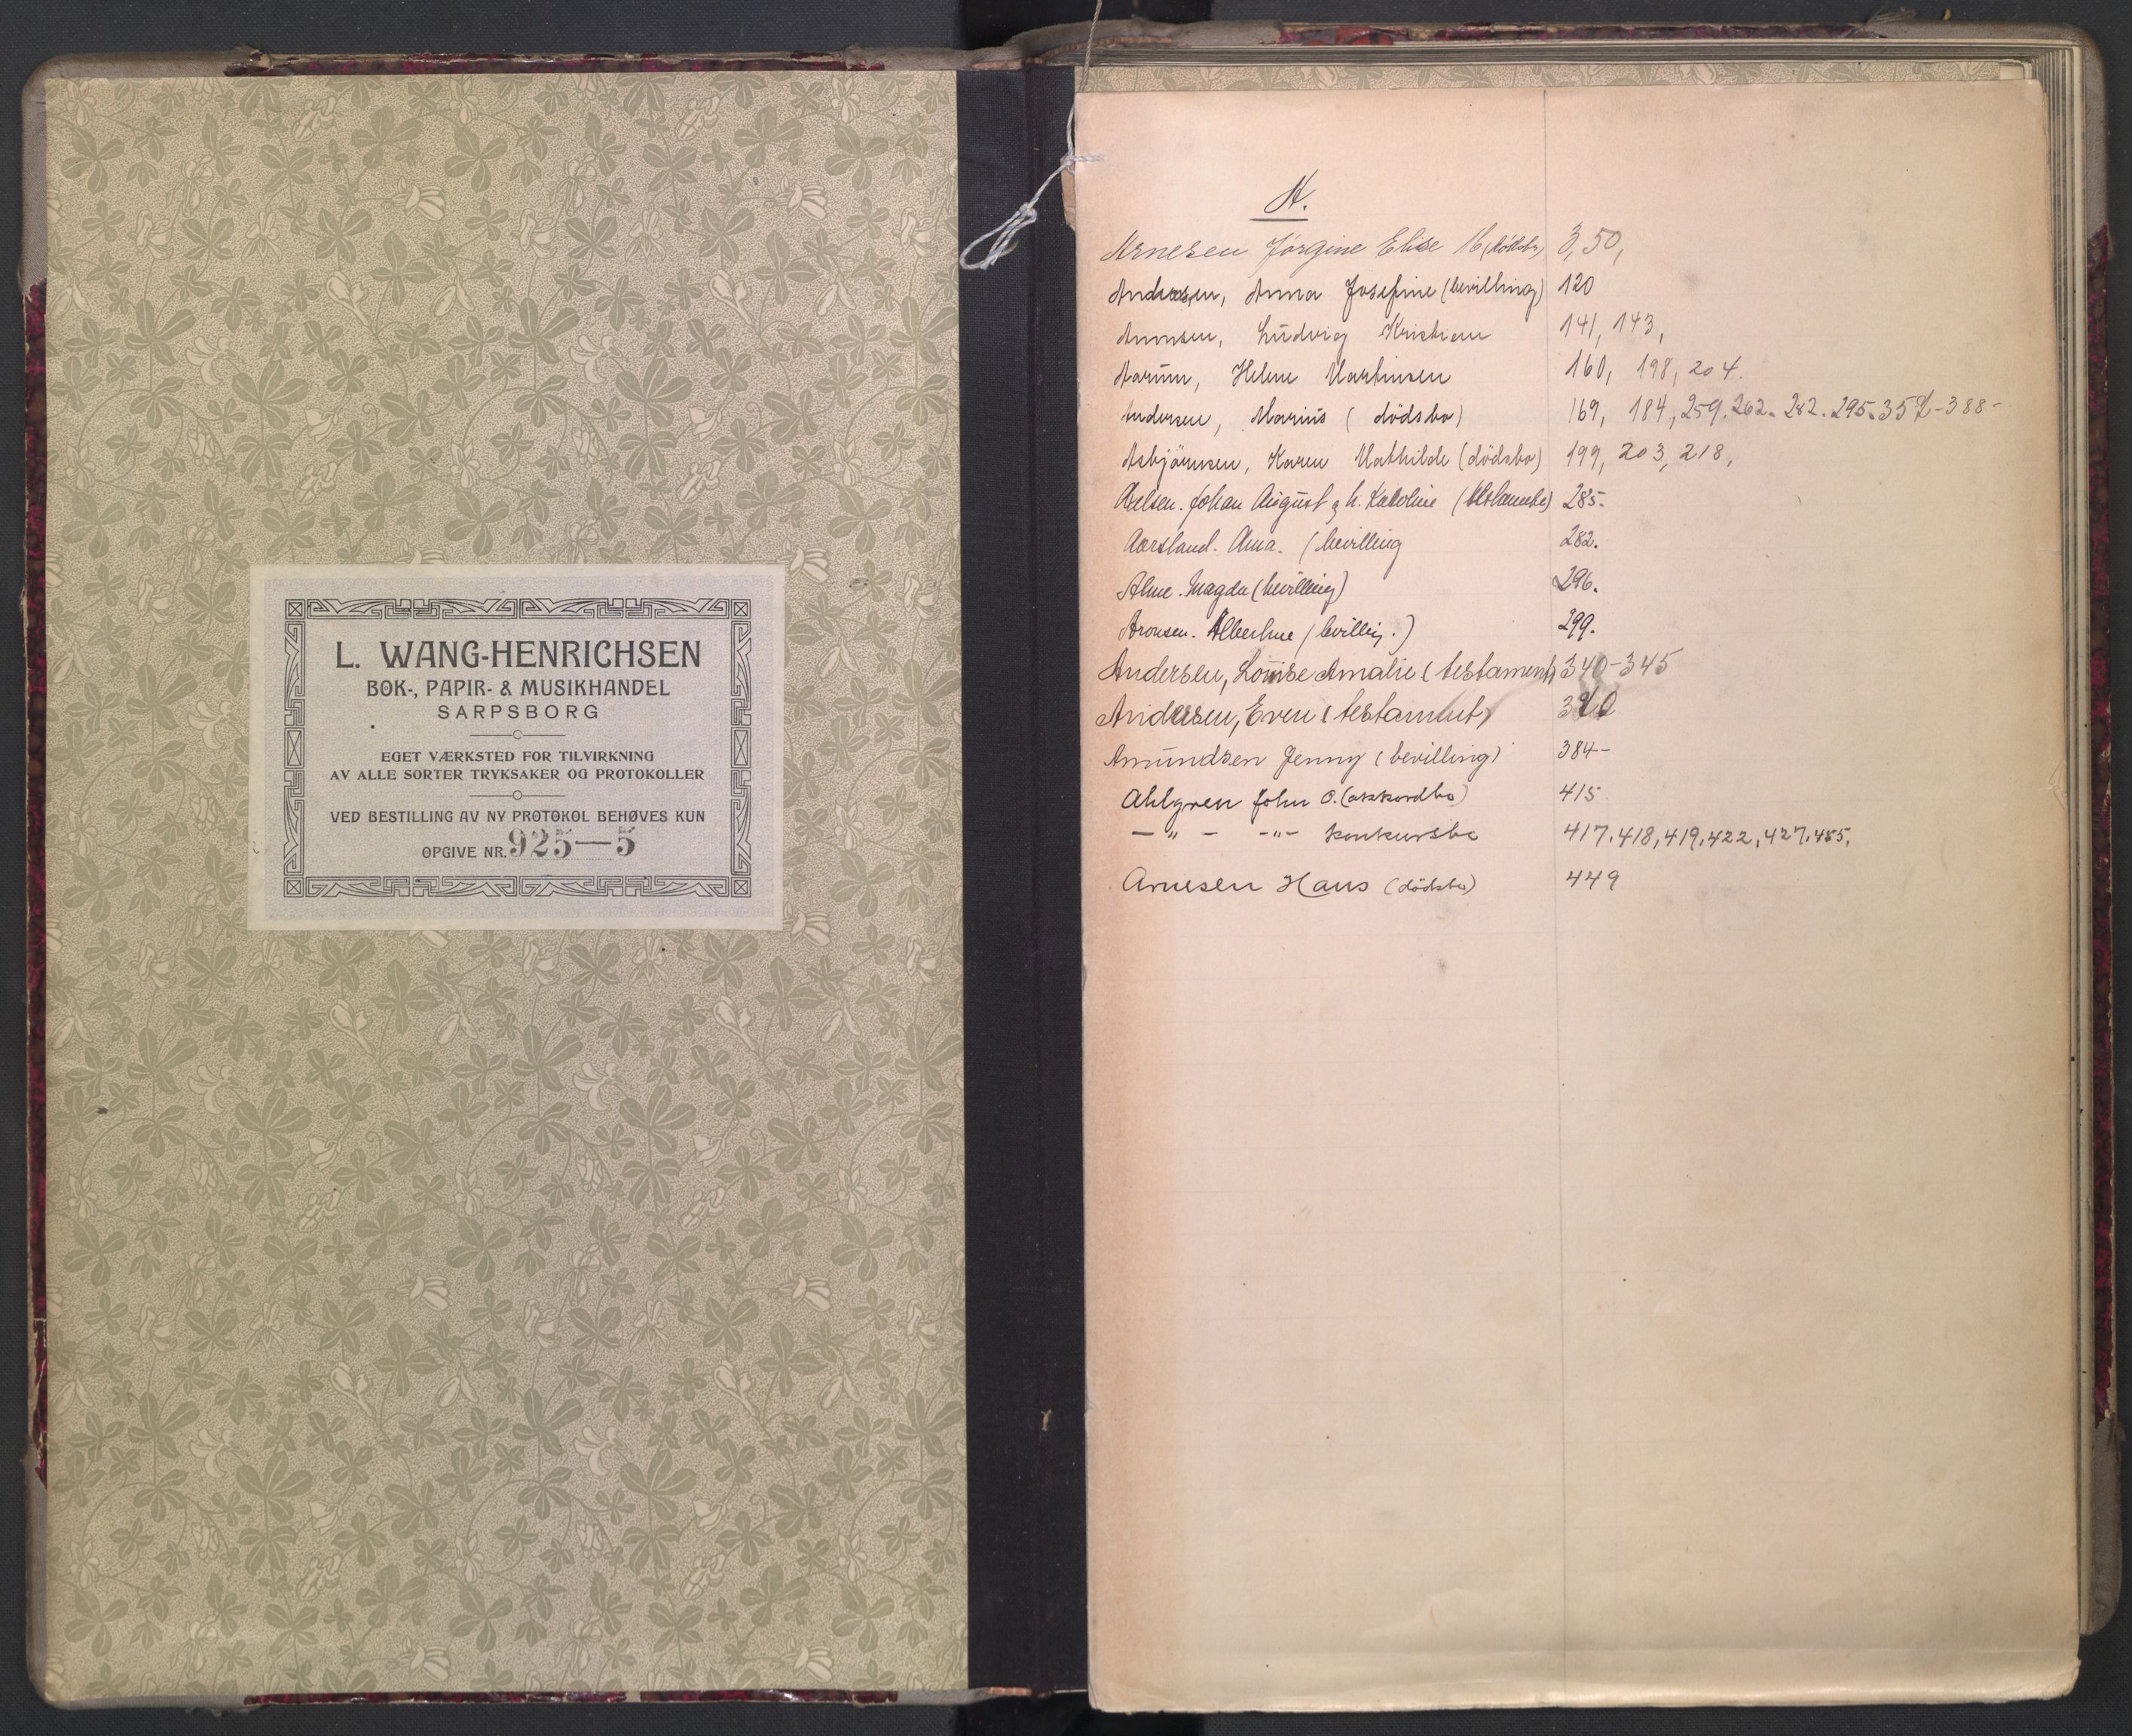 L. WANG-HENRICHSEN
BOK-, PAPIR- & MUSIKHANDEL
SARPSBORG
EGET VÆRKSTED FOR TILVIRKNING
AV ALLE SORTER TRYKSAKER OG PROTOKOLLER
VED BESTILLING AV NY PROTOKOL BEHØVES KUN
OPGIVE NR. 925—5
A.
Arnesen Jörgine Elise (dödsbo) 3, 50,
Andersen, Anna Josefine (bevilling) 120
Ludvig Kristian 141, 143,
Aarum, Helene Martinsen 160, 198, 204.
Andersen, Marius (dödsbo) 169, 184, 259. 262. 282. 295. 357-388-
Asbjörnsen, Karen Mathilde (dödsbo) 199, 203, 218,
Axelsen. Johan August & h. Karoline 285.
Aorsland. (bevilling 282.
Alme. Magda (bevilling) 296.
Aronsen. (bevillig.) 299.
Andersen, Louise Amalie (testament) 340-345
Andersen, Even (testament)
Amundsen Jenny (bevilling) 384-
Ahlgren John O. (akkordbo) 415
— " - -"- konkursbo 417, 418, 419, 422, 427, 455,
Arnesen Hans (dödsbo) 449